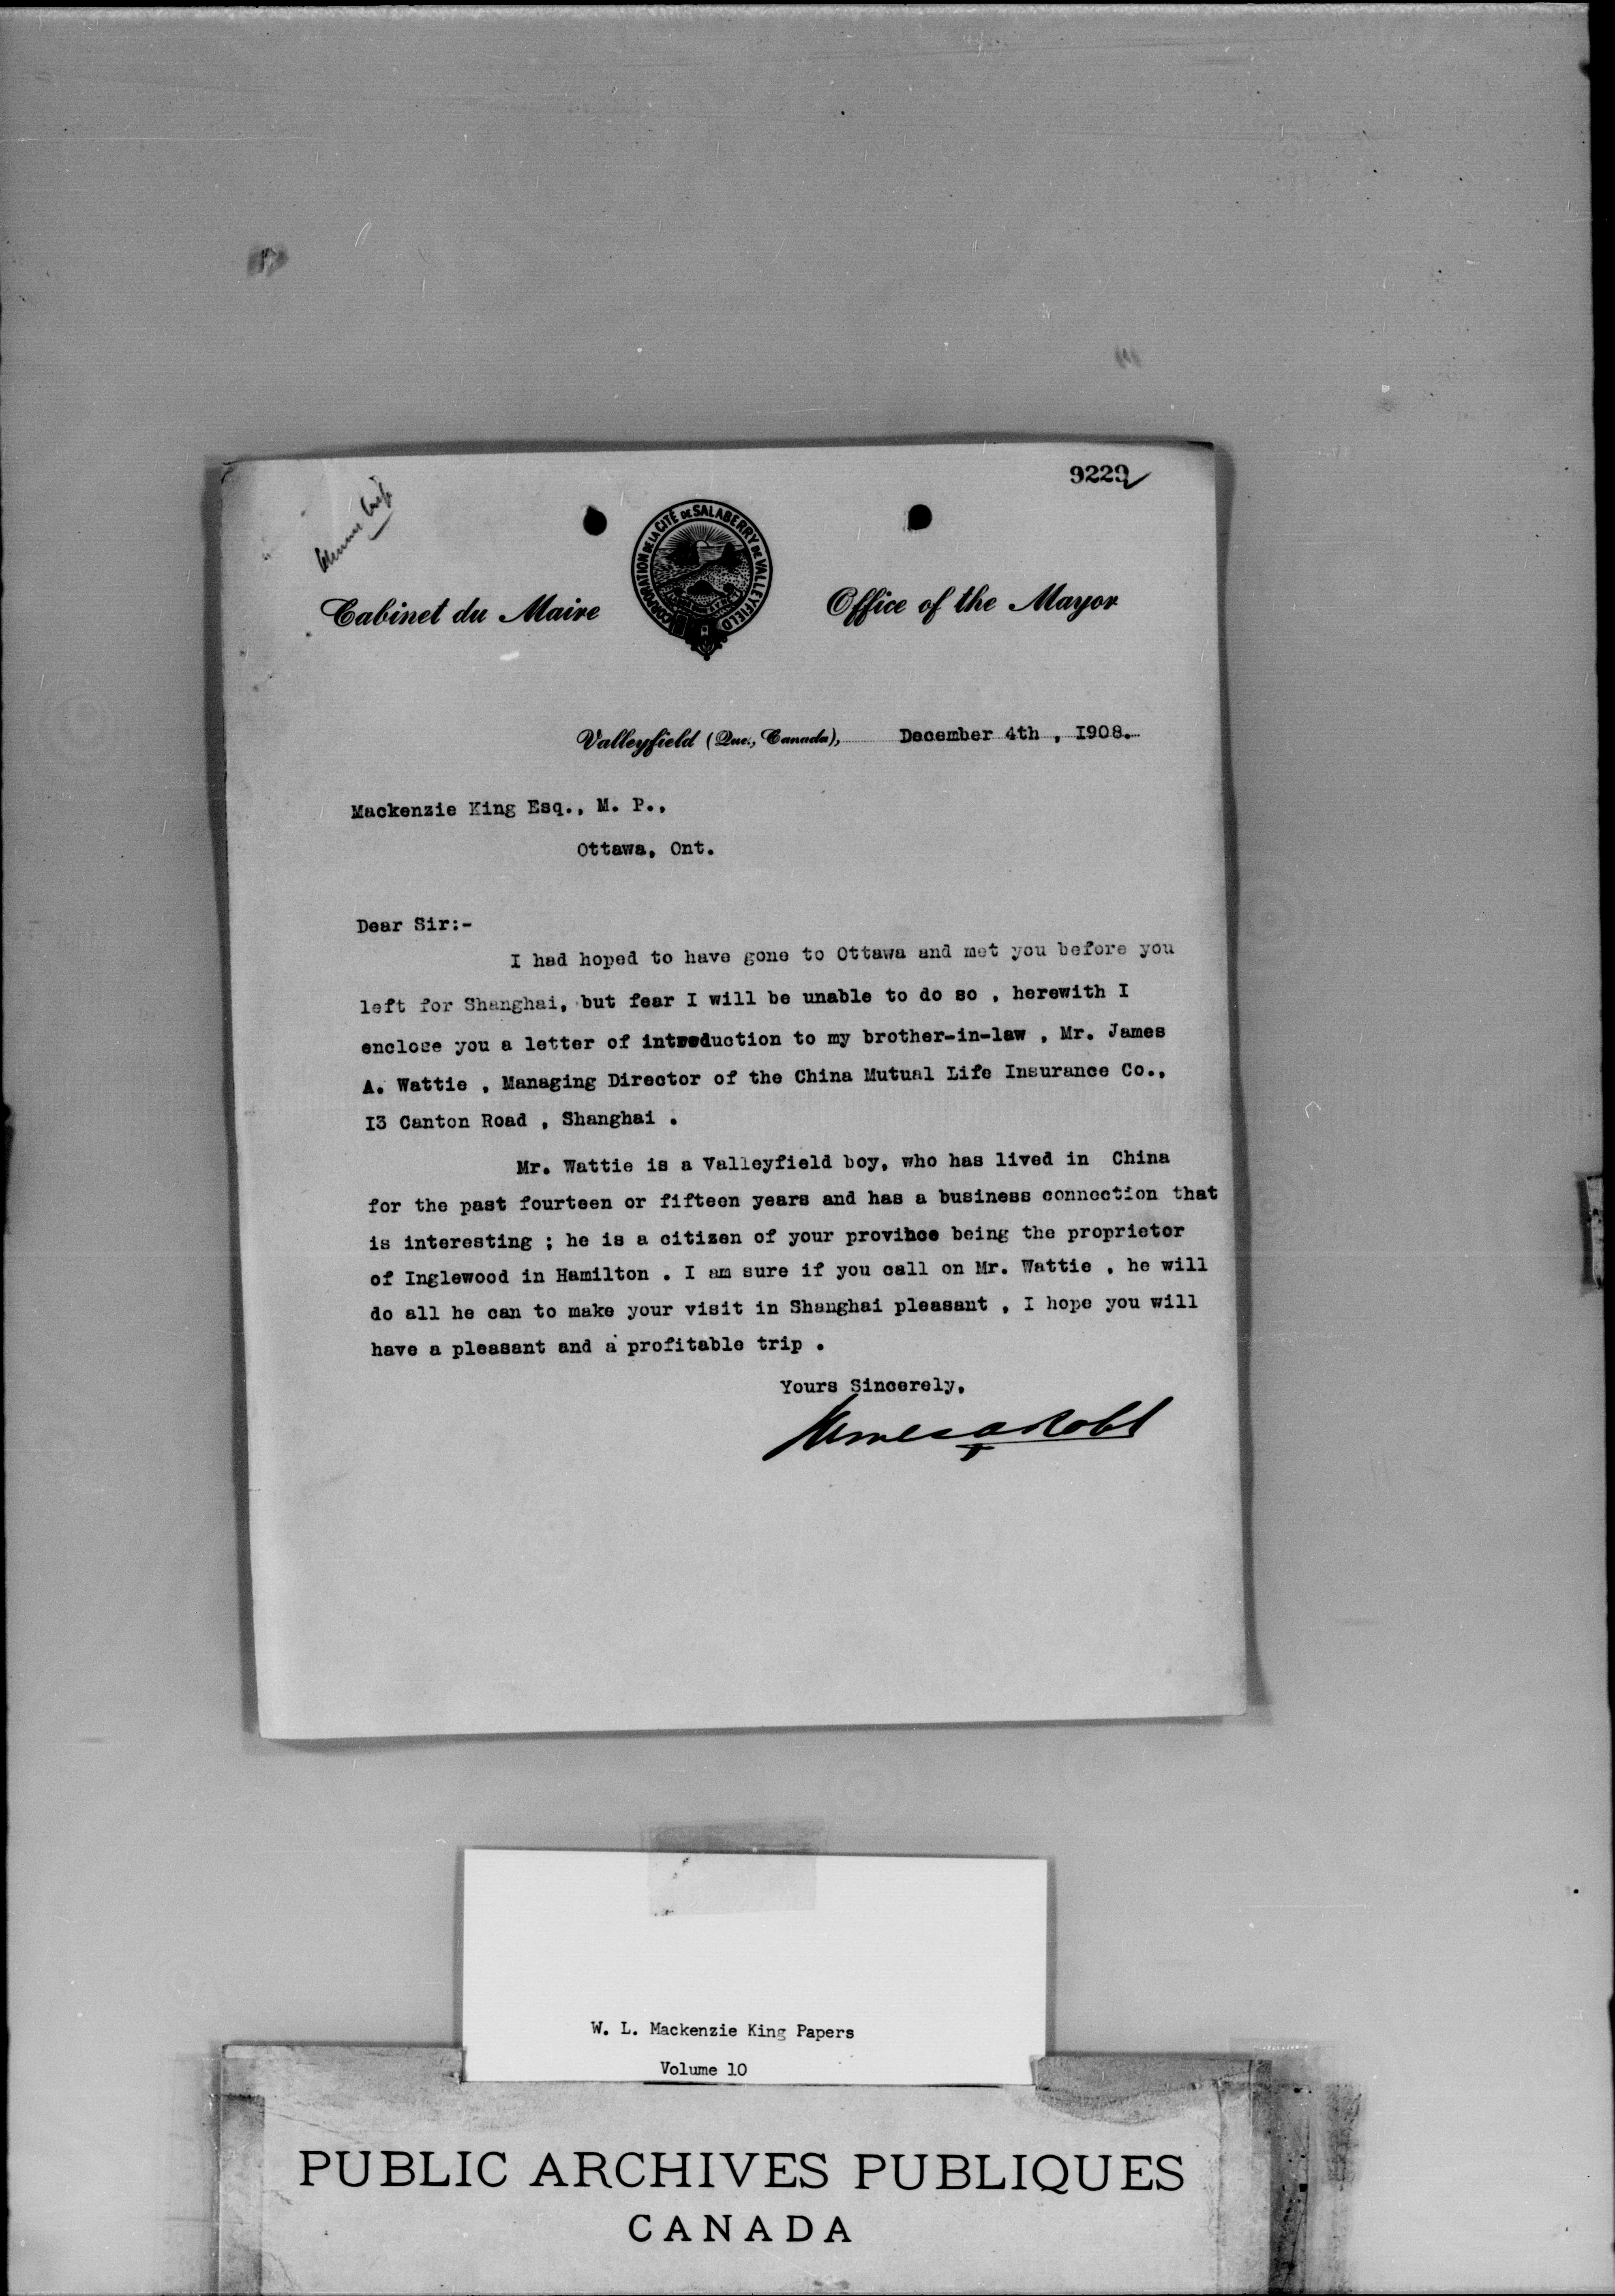 9229
CORPORATION DE LA CITÉ DE SALABERRY DE VALLEYFIELD
Cabinet du Maire
Office of the Mayor
Valleyfield (Que., Canada), December 4th , I908.
Mackenzie King Esq., M. P.,
Ottawa, Ont.
Dear Sir:-
I had hoped to have gone to Ottawa and met you before you
left for Shanghai, but fear I will be unable to do so , herewith I
enclose you a letter of introduction to my brother-in-law , Mr. James
A. Wattie , Managing Director of the China Mutual Life Insurance Co.,
I3 Canton Road , Shanghai .
Mr. Wattie is a Valleyfield boy, who has lived in China
for the past fourteen or fifteen years and has a business connection that
is interesting ; he is a citizen of your province being the proprietor
of Inglewood in Hamilton . I am sure if you call on Mr. Wattie , he will
do all he can to make your visit in Shanghai pleasant , I hope you will
have a pleasant and a profitable trip .
Yours Sincerely,
James A Robb
W. L. Mackenzie King Papers
Volume 10
PUBLIC ARCHIVES PUBLIQUES
CANADA